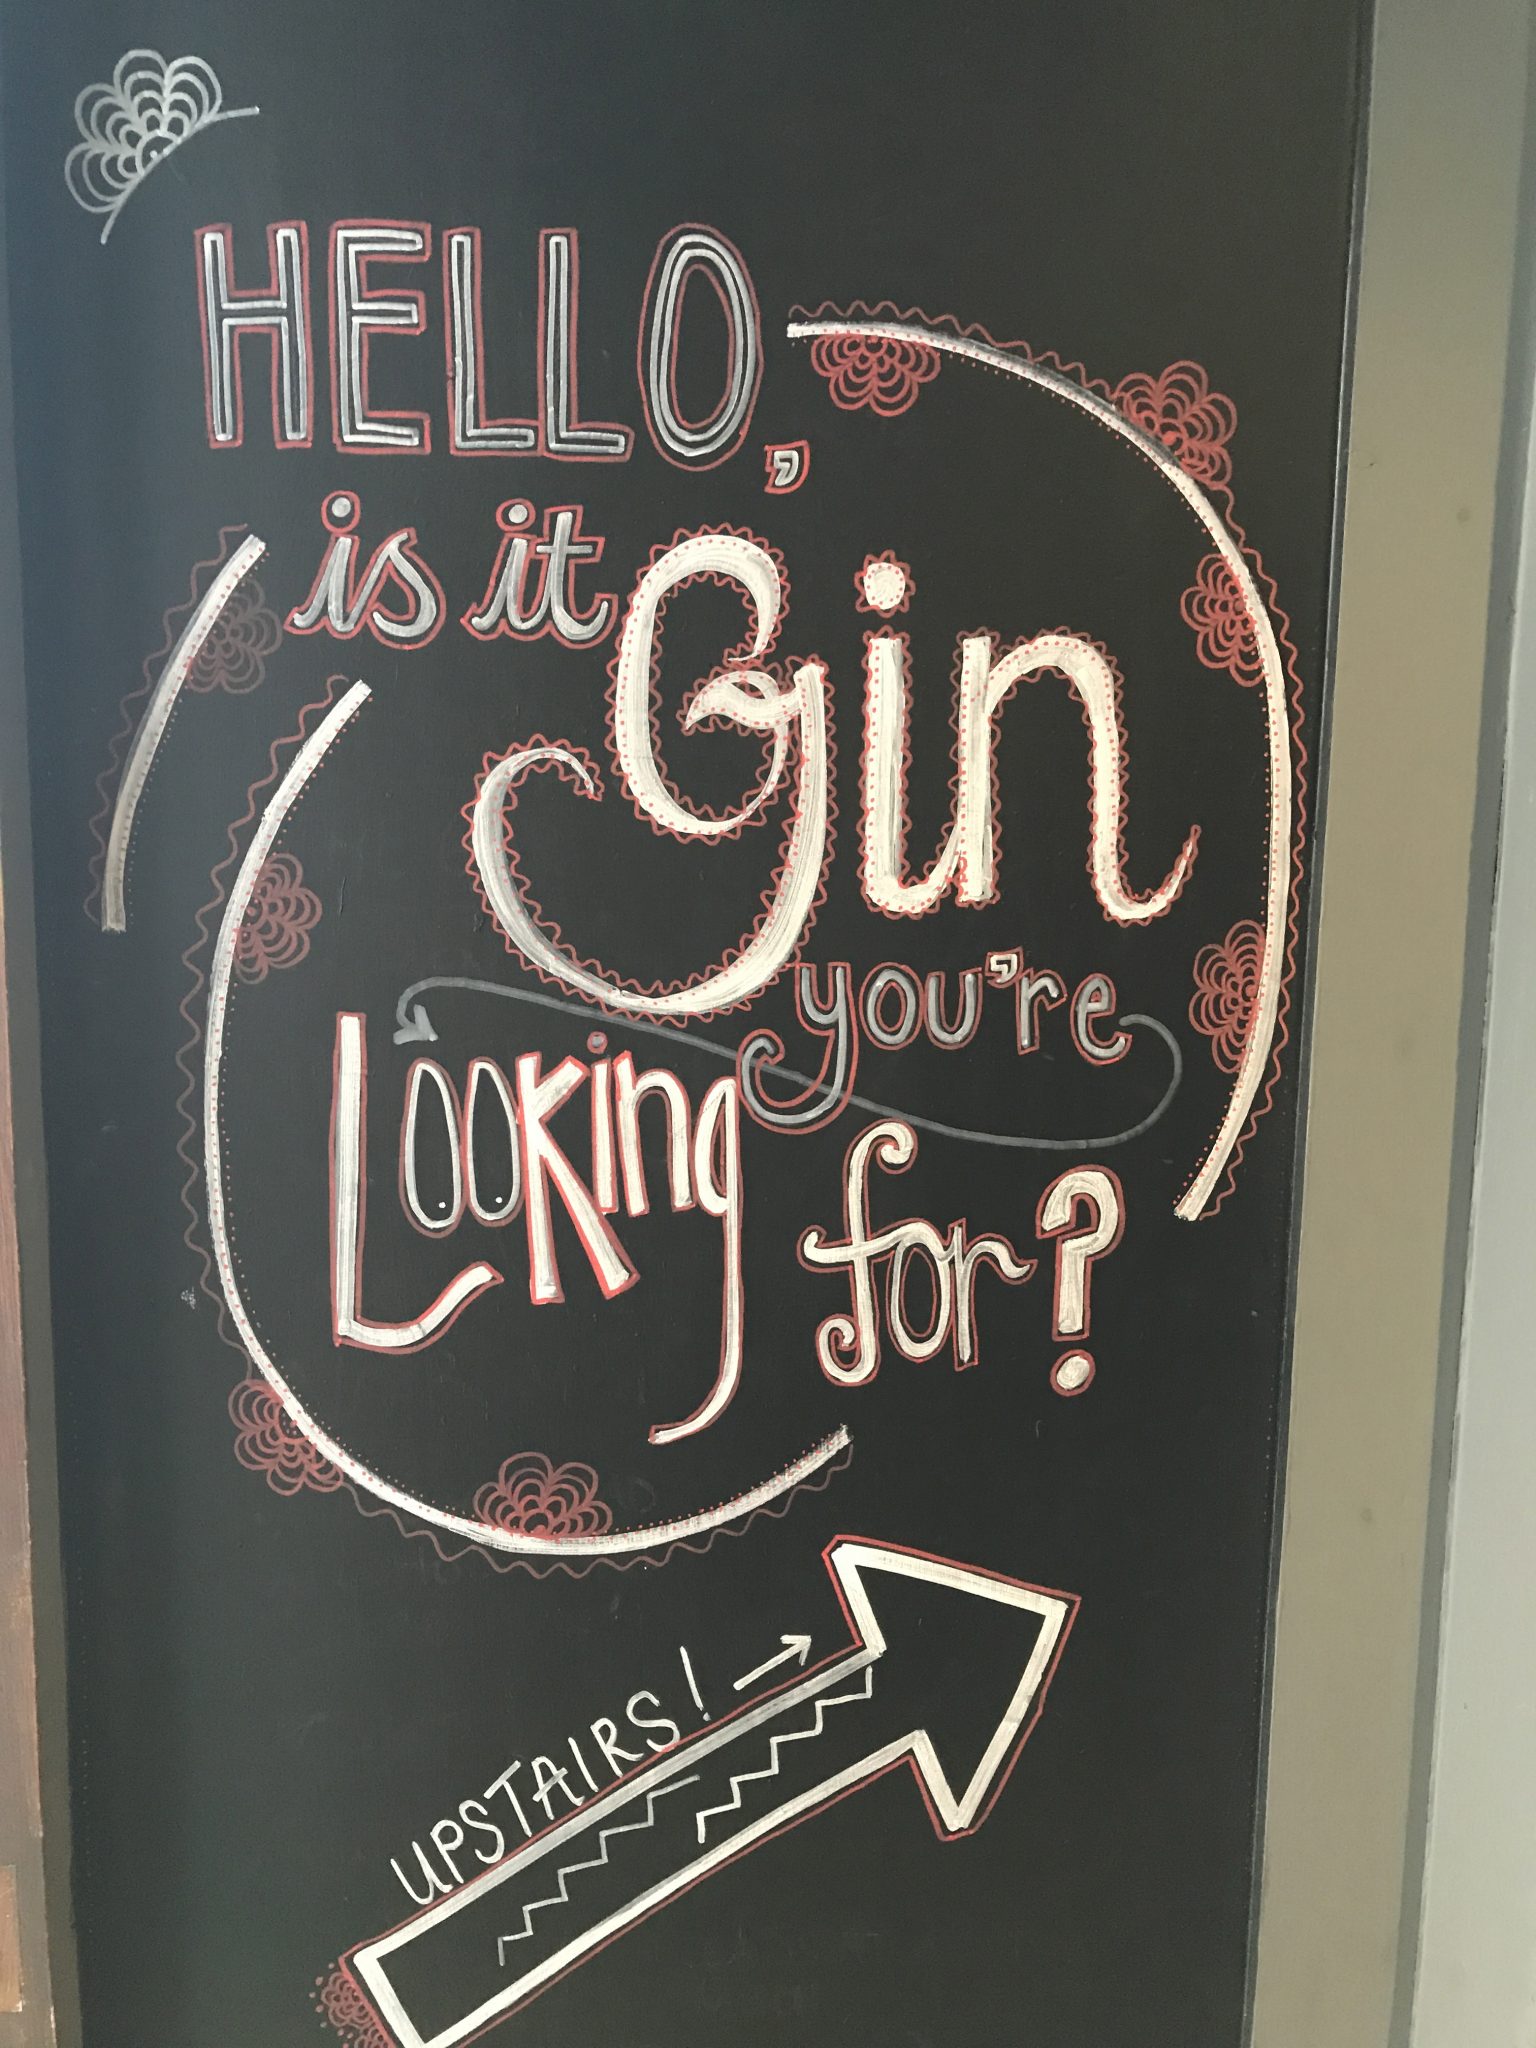 HELLO,
is it Gin
you're
Looking
for?
UPSTAIRS! →